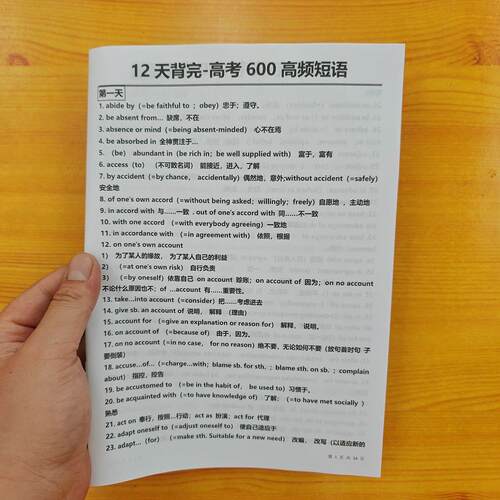 12天背完-高考600高频短语
第一天
1. abide by（=be faithful to ；obey）忠于；遵守。
2. be absent from… 缺席，不在
3. absence or mind（=being absent-minded） 心不在焉
4. be absorbed in 全神贯注于…
5. （be） abundant in（be rich in；be well supplied with） 富于，富有
6. access（to） （不可数名词） 能接近，进入，了解
7. by accident（=by chance， accidentally）偶然地，意外;without accident（=safely）
安全地
8. of one's own accord（=without being asked；willingly；freely）自愿地 ，主动地
9. in accord with 与……一致 . out of one's accord with 同……不一致
10. with one accord （=with everybody agreeing）一致地
11. in accordance with （=in agreement with） 依照，根据
12. on one's own account
1） 为了某人的缘故， 为了某人自己的利益
2） （=at one's own risk） 自行负责
3） （=by oneself）依靠自己 on account 赊账；on account of 因为；on no account
不论什么原因也不；of …account 有……重要性。
13. take…into account（=consider）把……考虑进去
14. give sb. an account of 说明， 解释 （理由）
15. account for （=give an explanation or reason for） 解释， 说明。
16. on account of （=because of） 由于，因为。
17. on no account（=in no case， for no reason）绝不要，无论如何不要（放句首时句 子
要倒装）
18. accuse…of…（=charge…with；blame sb. for sth. ；blame sth. on sb. ；complain
about） 指控，控告
19. be accustomed to （=be in the habit of， be used to）习惯于。
20. be acquainted with（=to have knowledge of） 了解；（=to have met socially ）
熟悉
21. act on 奉行，按照…行动；act as 扮演；act for 代理
22. adapt oneself to（=adjust oneself to） 使自己适应于
23. adapt…（for）（=make sth. Suitable for a new need） 改编， 改写（以适应新的